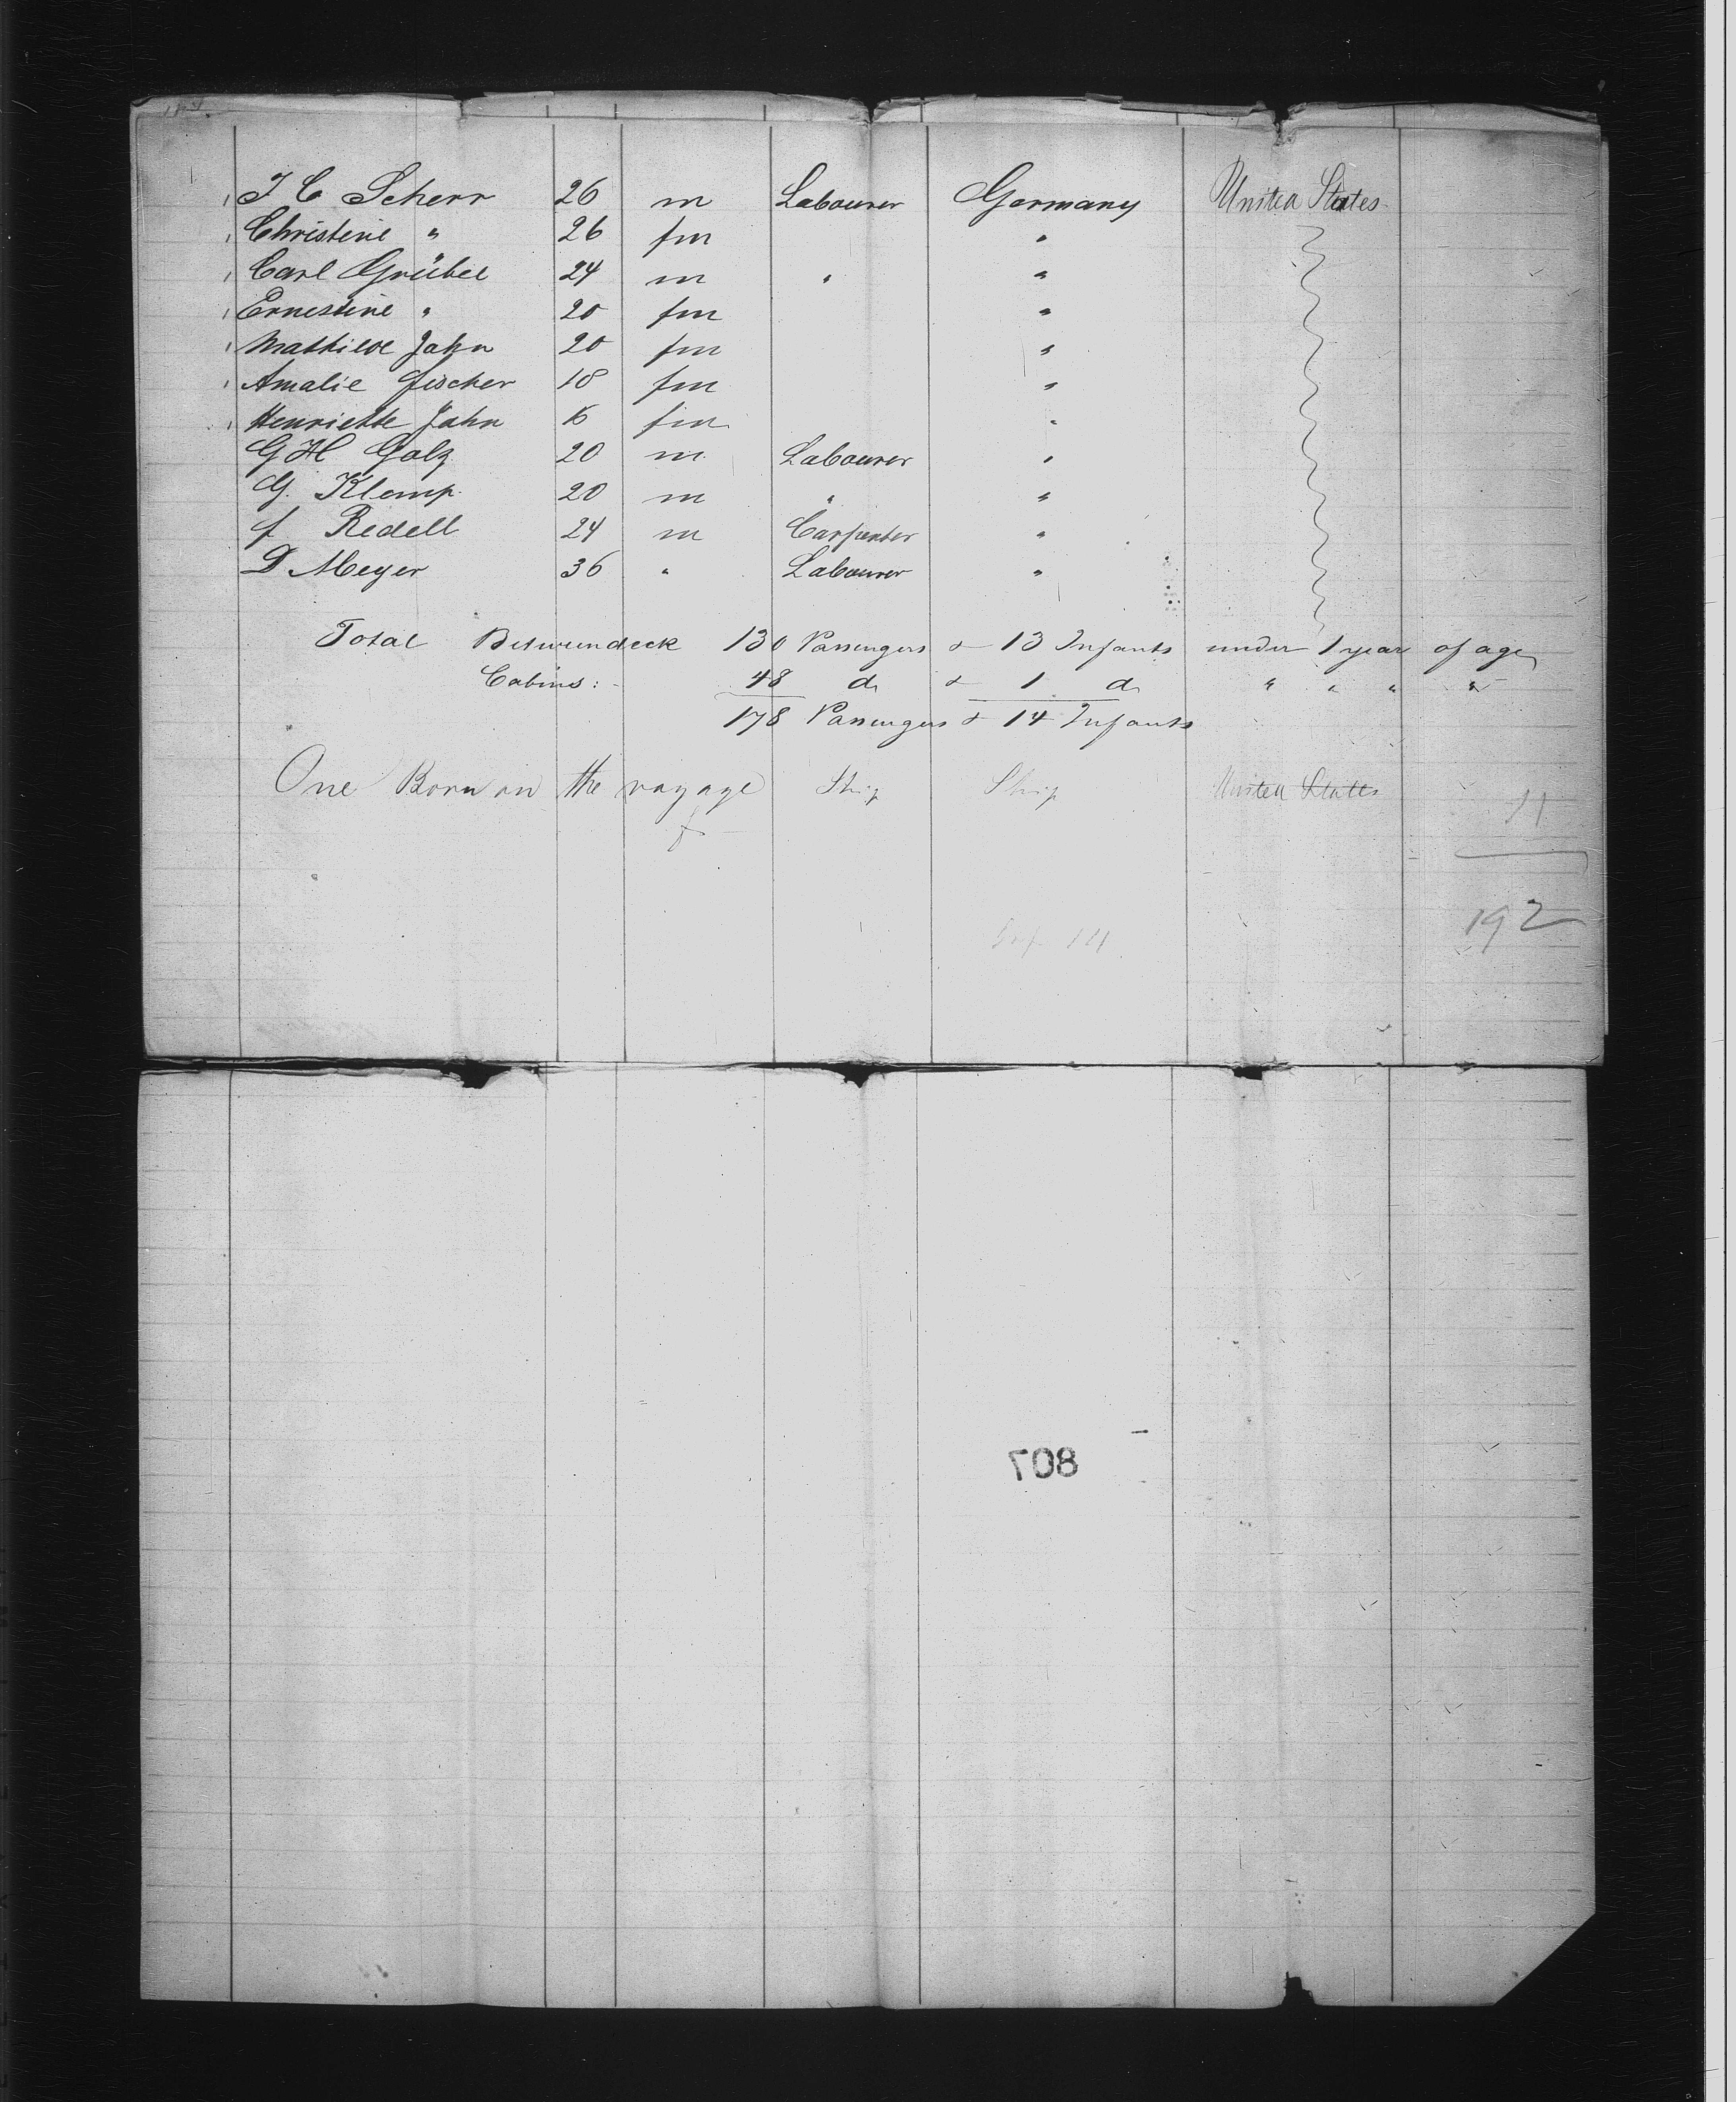 J C Scherr 26 m Labourer Germany United States
Christine " 26 fm "
Carl Grübel 24 m " "
Ernestine " 20 fm "
Mathilde Jahn 20 fm "
Amalie Fischer 18 fm "
Henriette Jahn fm "
G H Golz 20 m Labourer "
G. Klemp 20 m " "
f Redell 24 m Carpenter "
D Meyer 36 " Labourer "
Total Betweendeck 130 Passengers & 13 Infants under 1 year of age
Cabins: 48 do & 1 do " " " "
178 Passengers & 14 Infants
One Born on the voyage Ship Ship United States
f
192
708